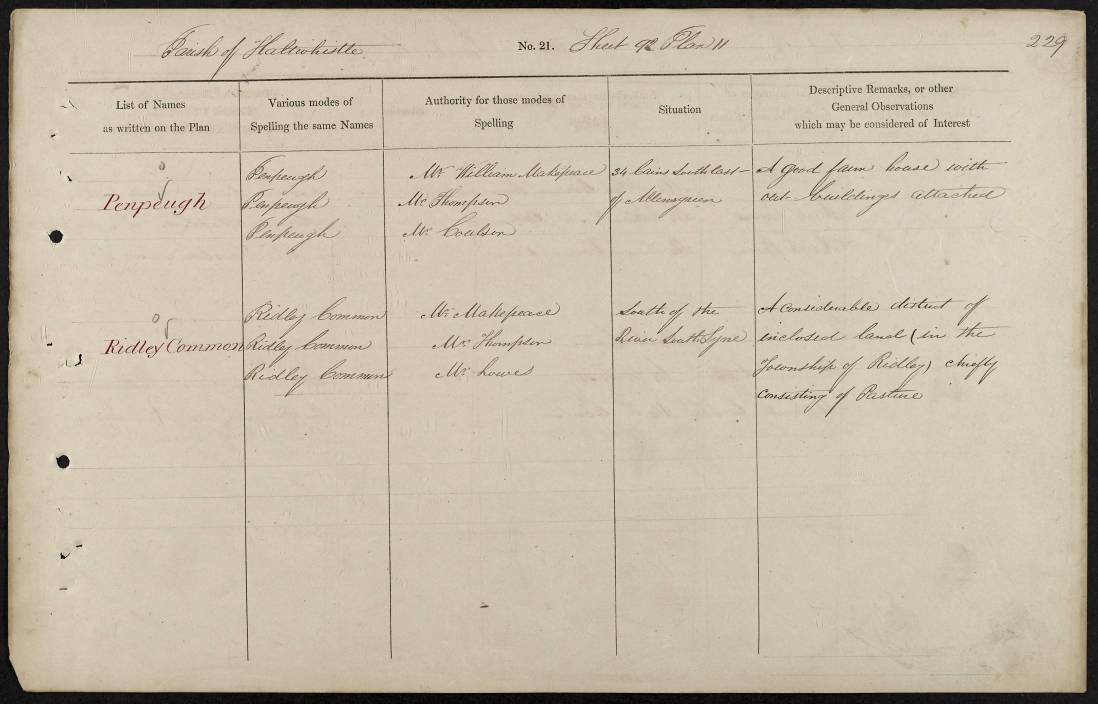 Parish of Haltwhistle No. 21. Sheet 92 Plan 11 229
List of Names as written on the Plan
Various modes of Spelling the same Names
Authority for those modes of Spelling
Situation
Descriptive Remarks, or other General Observations which may be considered of Interest
Penpeugh Mr. William Makepeace 34 Chains South East A good farm house with
Penpeugh Penpeugh Mr. Thompson of Allensgreen out-buildings attached
Penpeugh Mr. Coulson
Ridley Common Mr. Makepeace South of the A considerable district of
Ridley Common Ridley Common Mr. Thompson River South Tyne inclosed land (in the
Ridley Common Mr. Lowes Township of Ridley) chiefly
consisting of Pasture